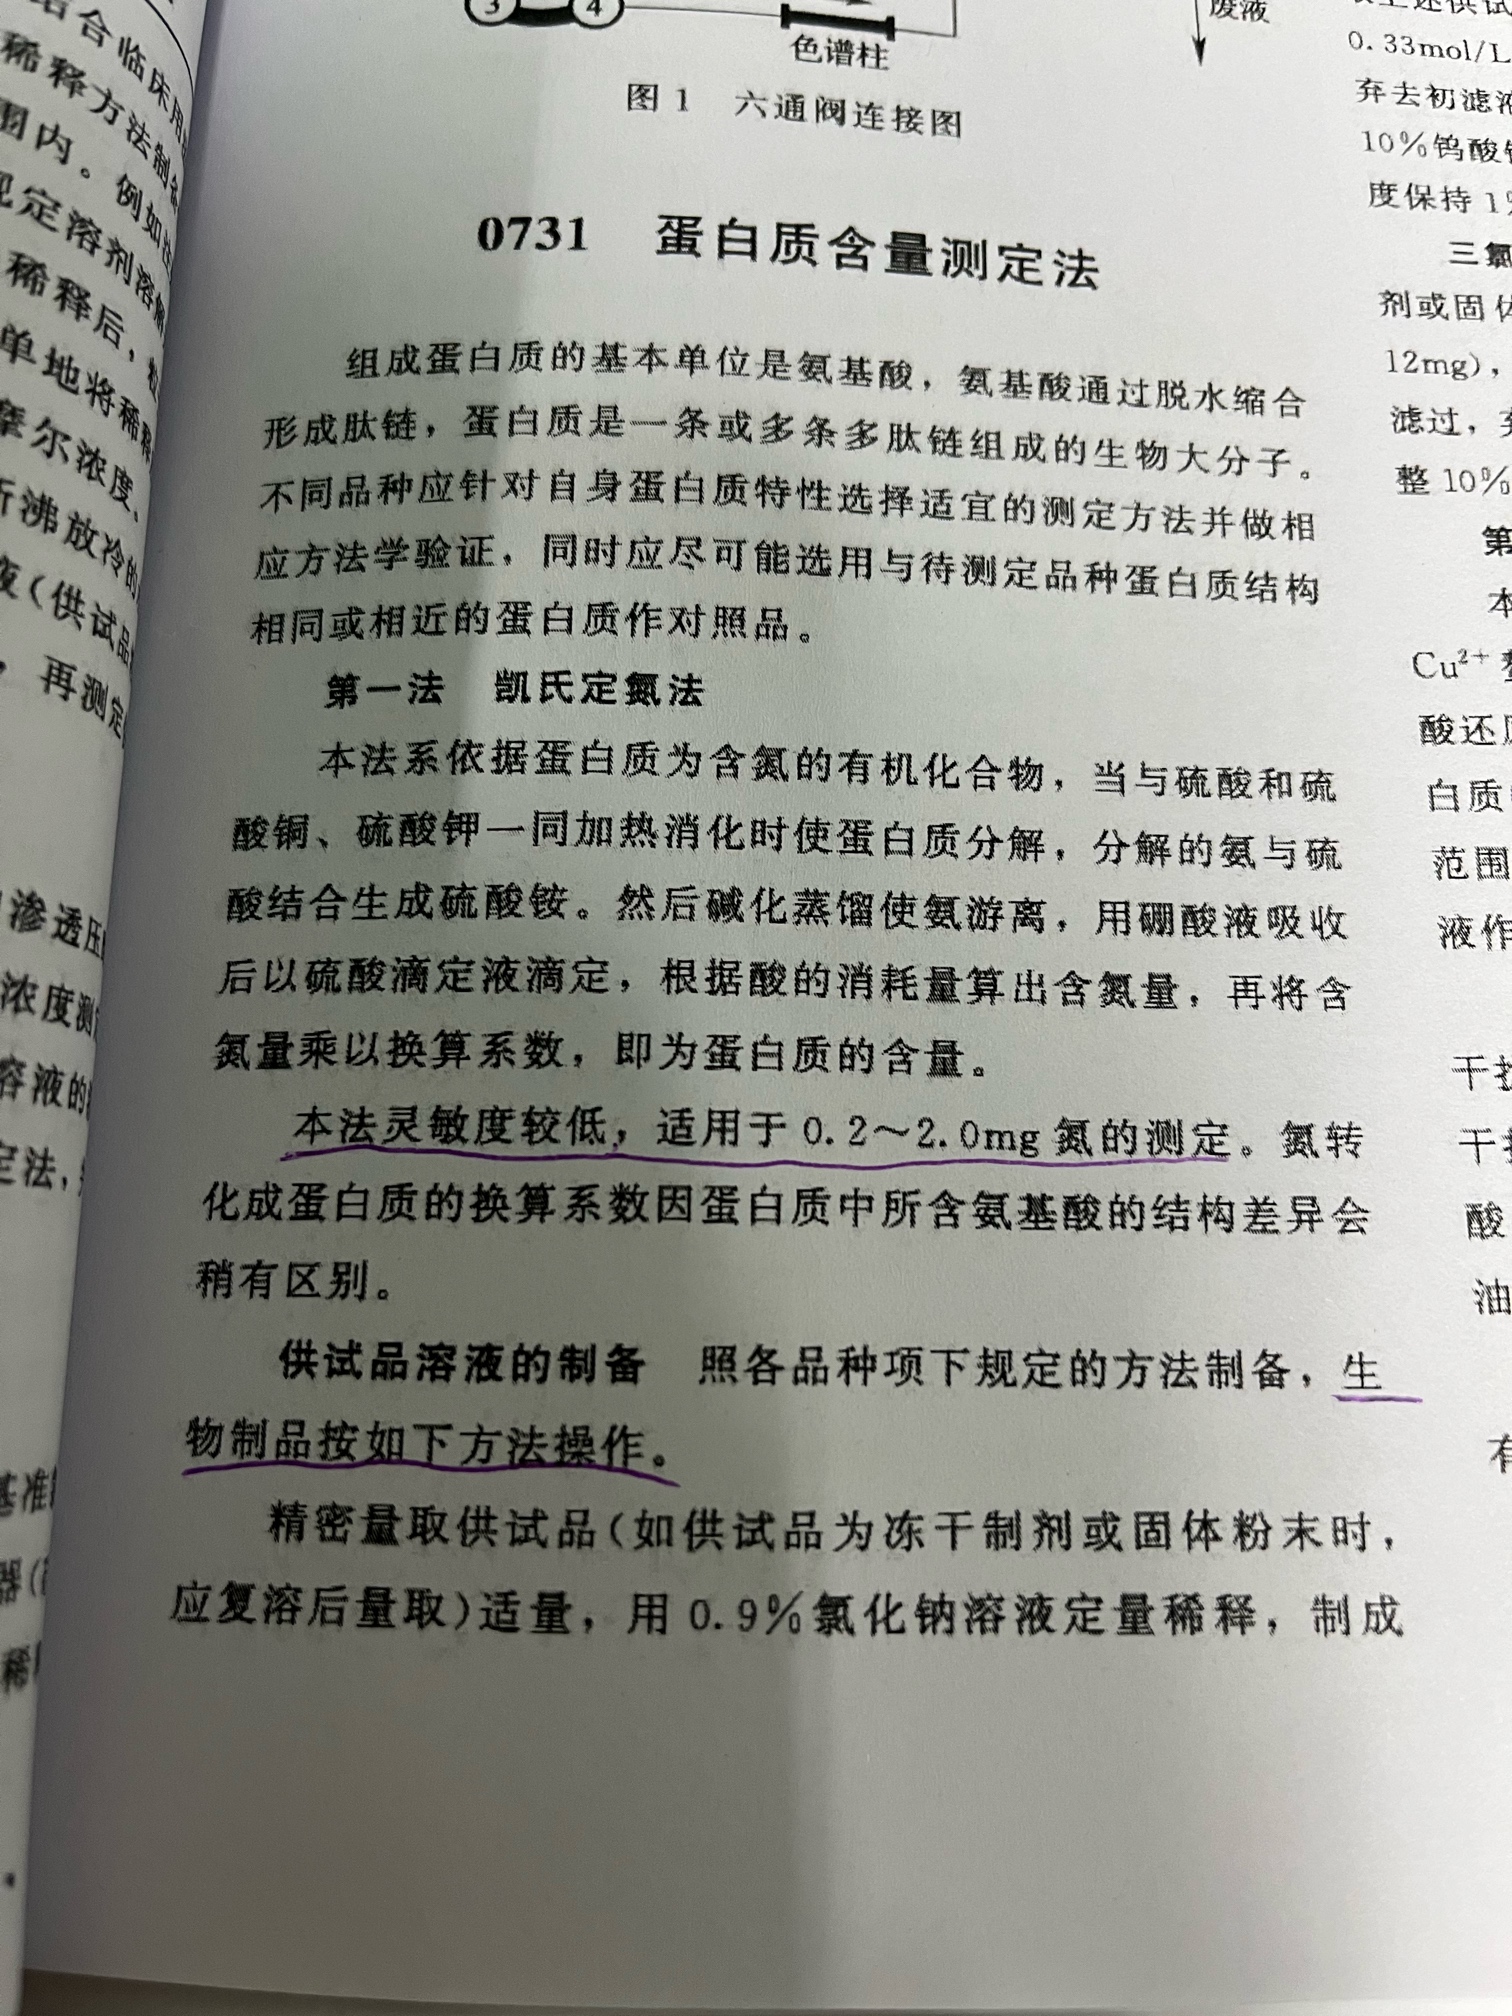 结合临床用
稀释方法制备
围内。例如注
规定溶剂溶解
稀释后,
单地将稀释
摩尔浓度、
沸放冷的
液(供试品
,再测定
渗透压
浓度测
溶液的
定法,
基准
器(
稀
③ ④
色谱柱
废液
图1 六通阀连接图
0731 蛋白质含量测定法
组成蛋白质的基本单位是氨基酸,氨基酸通过脱水缩合
形成肽链,蛋白质是一条或多条多肽链组成的生物大分子。
不同品种应针对自身蛋白质特性选择适宜的测定方法并做相
应方法学验证,同时应尽可能选用与待测定品种蛋白质结构
相同或相近的蛋白质作对照品。
第一法 凯氏定氮法
本法系依据蛋白质为含氮的有机化合物,当与硫酸和硫
酸铜、硫酸钾一同加热消化时使蛋白质分解,分解的氨与硫
酸结合生成硫酸铵。然后碱化蒸馏使氨游离,用硼酸液吸收
后以硫酸滴定液滴定,根据酸的消耗量算出含氮量,再将含
氮量乘以换算系数,即为蛋白质的含量。
本法灵敏度较低,适用于0.2～2.0mg氮的测定。氮转
化成蛋白质的换算系数因蛋白质中所含氨基酸的结构差异会
稍有区别。
供试品溶液的制备 照各品种项下规定的方法制备,生
物制品按如下方法操作。
精密量取供试品(如供试品为冻干制剂或固体粉末时,
应复溶后量取)适量,用0.9%氯化钠溶液定量稀释,制成
上述供试
0.33mol/L
弃去初滤液
10%钨酸
度保持1%
三氯
剂或固体
12mg),
滤过,
整10%
第
本
Cu²⁺
酸还
白质
范围
液作
干扰
干扰
酸
油
有